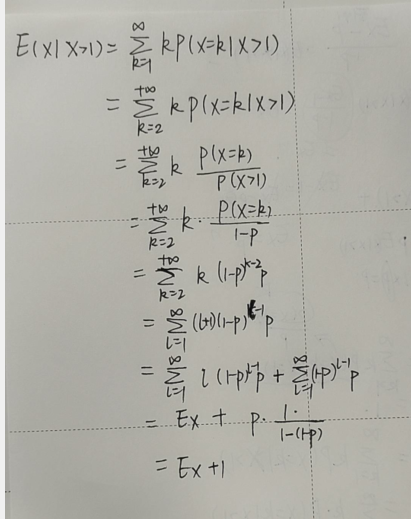 E(X|X>1) = ∑_{k=1}^{∞} k P(X=k|X>1)
= ∑_{k=2}^{+∞} k P(X=k|X>1)
= ∑_{k=2}^{+∞} k P(X=k)/P(X>1)
= ∑_{k=2}^{+∞} k · P(X=k)/1-p
= ∑_{k=2}^{+∞} k (1-p)^{k-2} p
= ∑_{l=1}^{∞} (l+1)(1-p)^{l-1} p
= ∑_{l=1}^{∞} l (1-p)^{l-1} p + ∑_{l=1}^{∞} (1-p)^{l-1} p
= Ex + p · 1/1-(1-p)
= Ex + 1